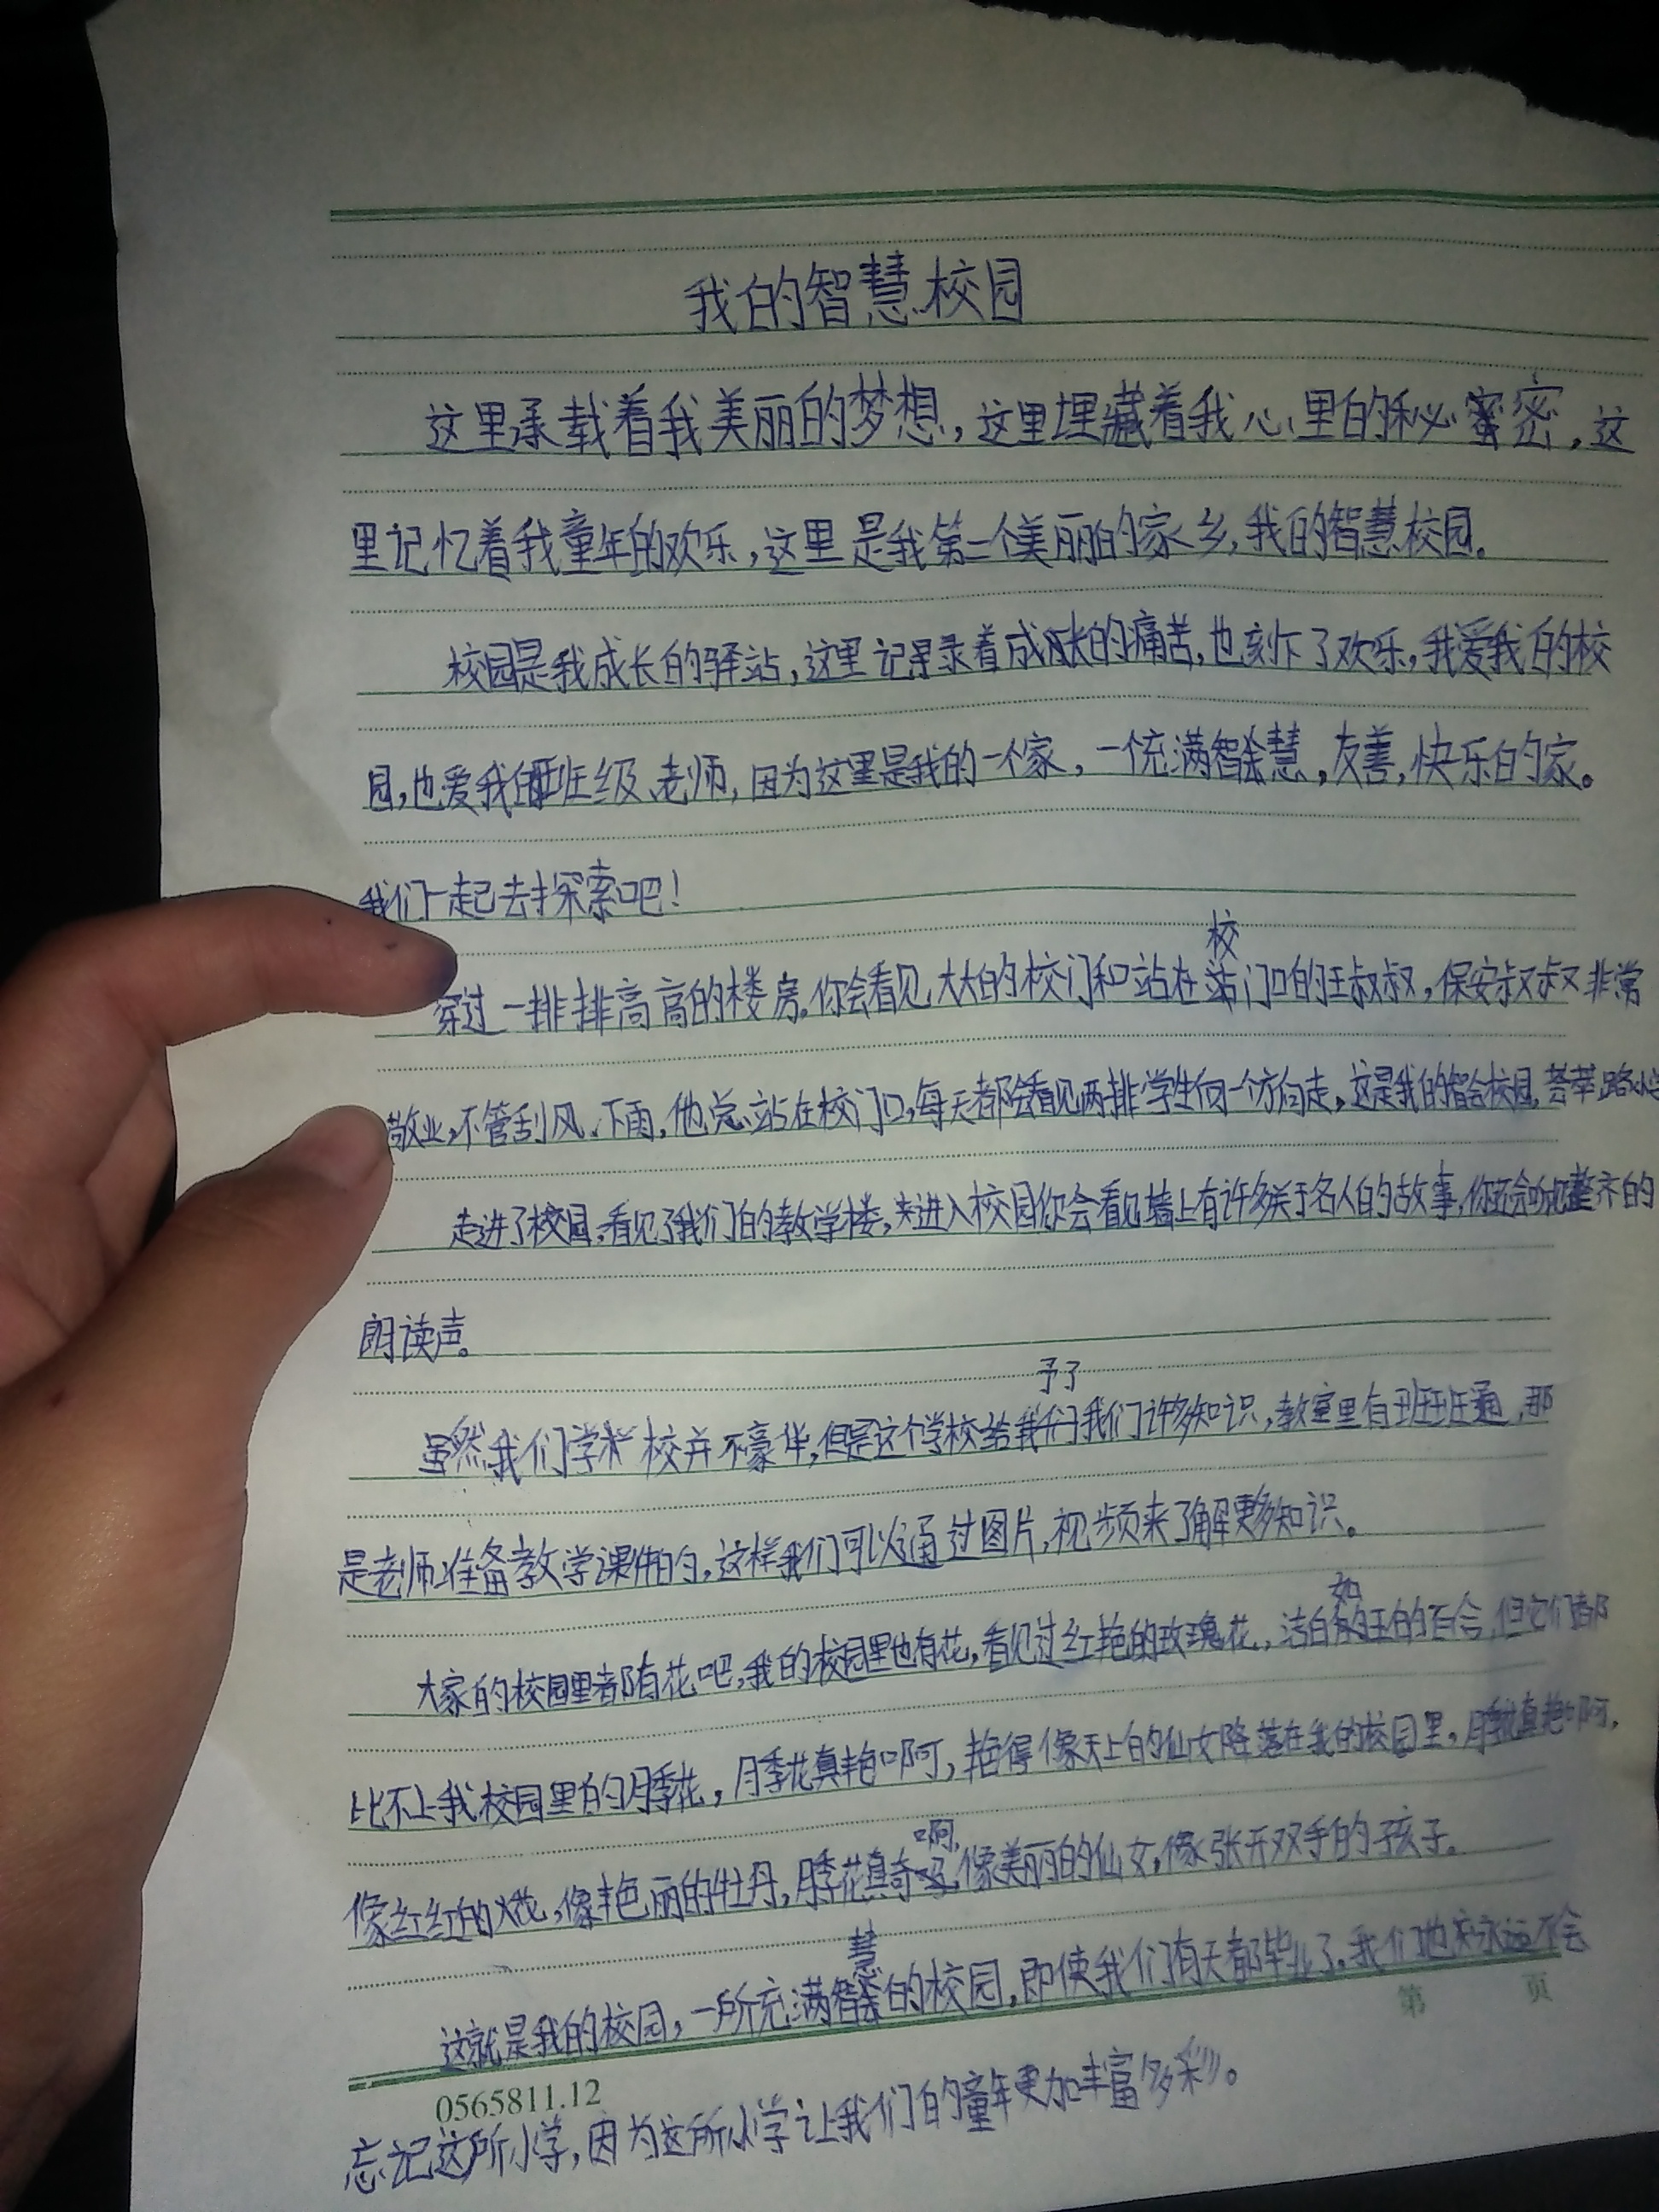 我的智慧校园
这里承载着我美丽的梦想，这里埋藏着我心里的秘密，这
里记忆着我童年的欢乐，这里是我第二个美丽的家乡，我的智慧校园。
校园是我成长的驿站，这里记录着成长的痛苦，也刻下了欢乐，我爱我的校
园，也爱我的班级、老师，因为这里是我的一个家，一个充满智慧，友善，快乐的家。
我们一起去探索吧！
穿过一排排高高的楼房，你会看见大大的校门和站在校门口的王叔叔，保安叔叔非常
敬业，不管刮风、下雨，他总站在校门口，每天都会看见两排学生向一个方向走，这是我的智会校园，荟萃路小学
走进了校园，看见了我们的教学楼，走进入校园你会看见墙上有许多关于名人的故事，你还会听见整齐的
朗读声。
虽然我们学校并不豪华，但是这个学校给予了我们许多知识，教室里有班班通，那
是老师准备教学课件的，这样我们可以通过图片，视频来了解更多知识。
大家的校园里都有花吧，我的校园里也有花，看见过红艳的玫瑰花，洁白如玉的百合，但它们都
比不上我校园里的月季花，月季花真艳啊，艳得像天上的仙女降落在我的校园里，月季花真艳啊，
像红红的火花，像艳丽的牡丹，月季花真奇啊，像美丽的仙女，像张开双手的孩子。
这就是我的校园，一所充满智慧的校园，即使我们有天都毕业了，我们也永远不会
第 页
0565811.12
忘记这所小学，因为这所小学让我们的童年更加丰富多彩。